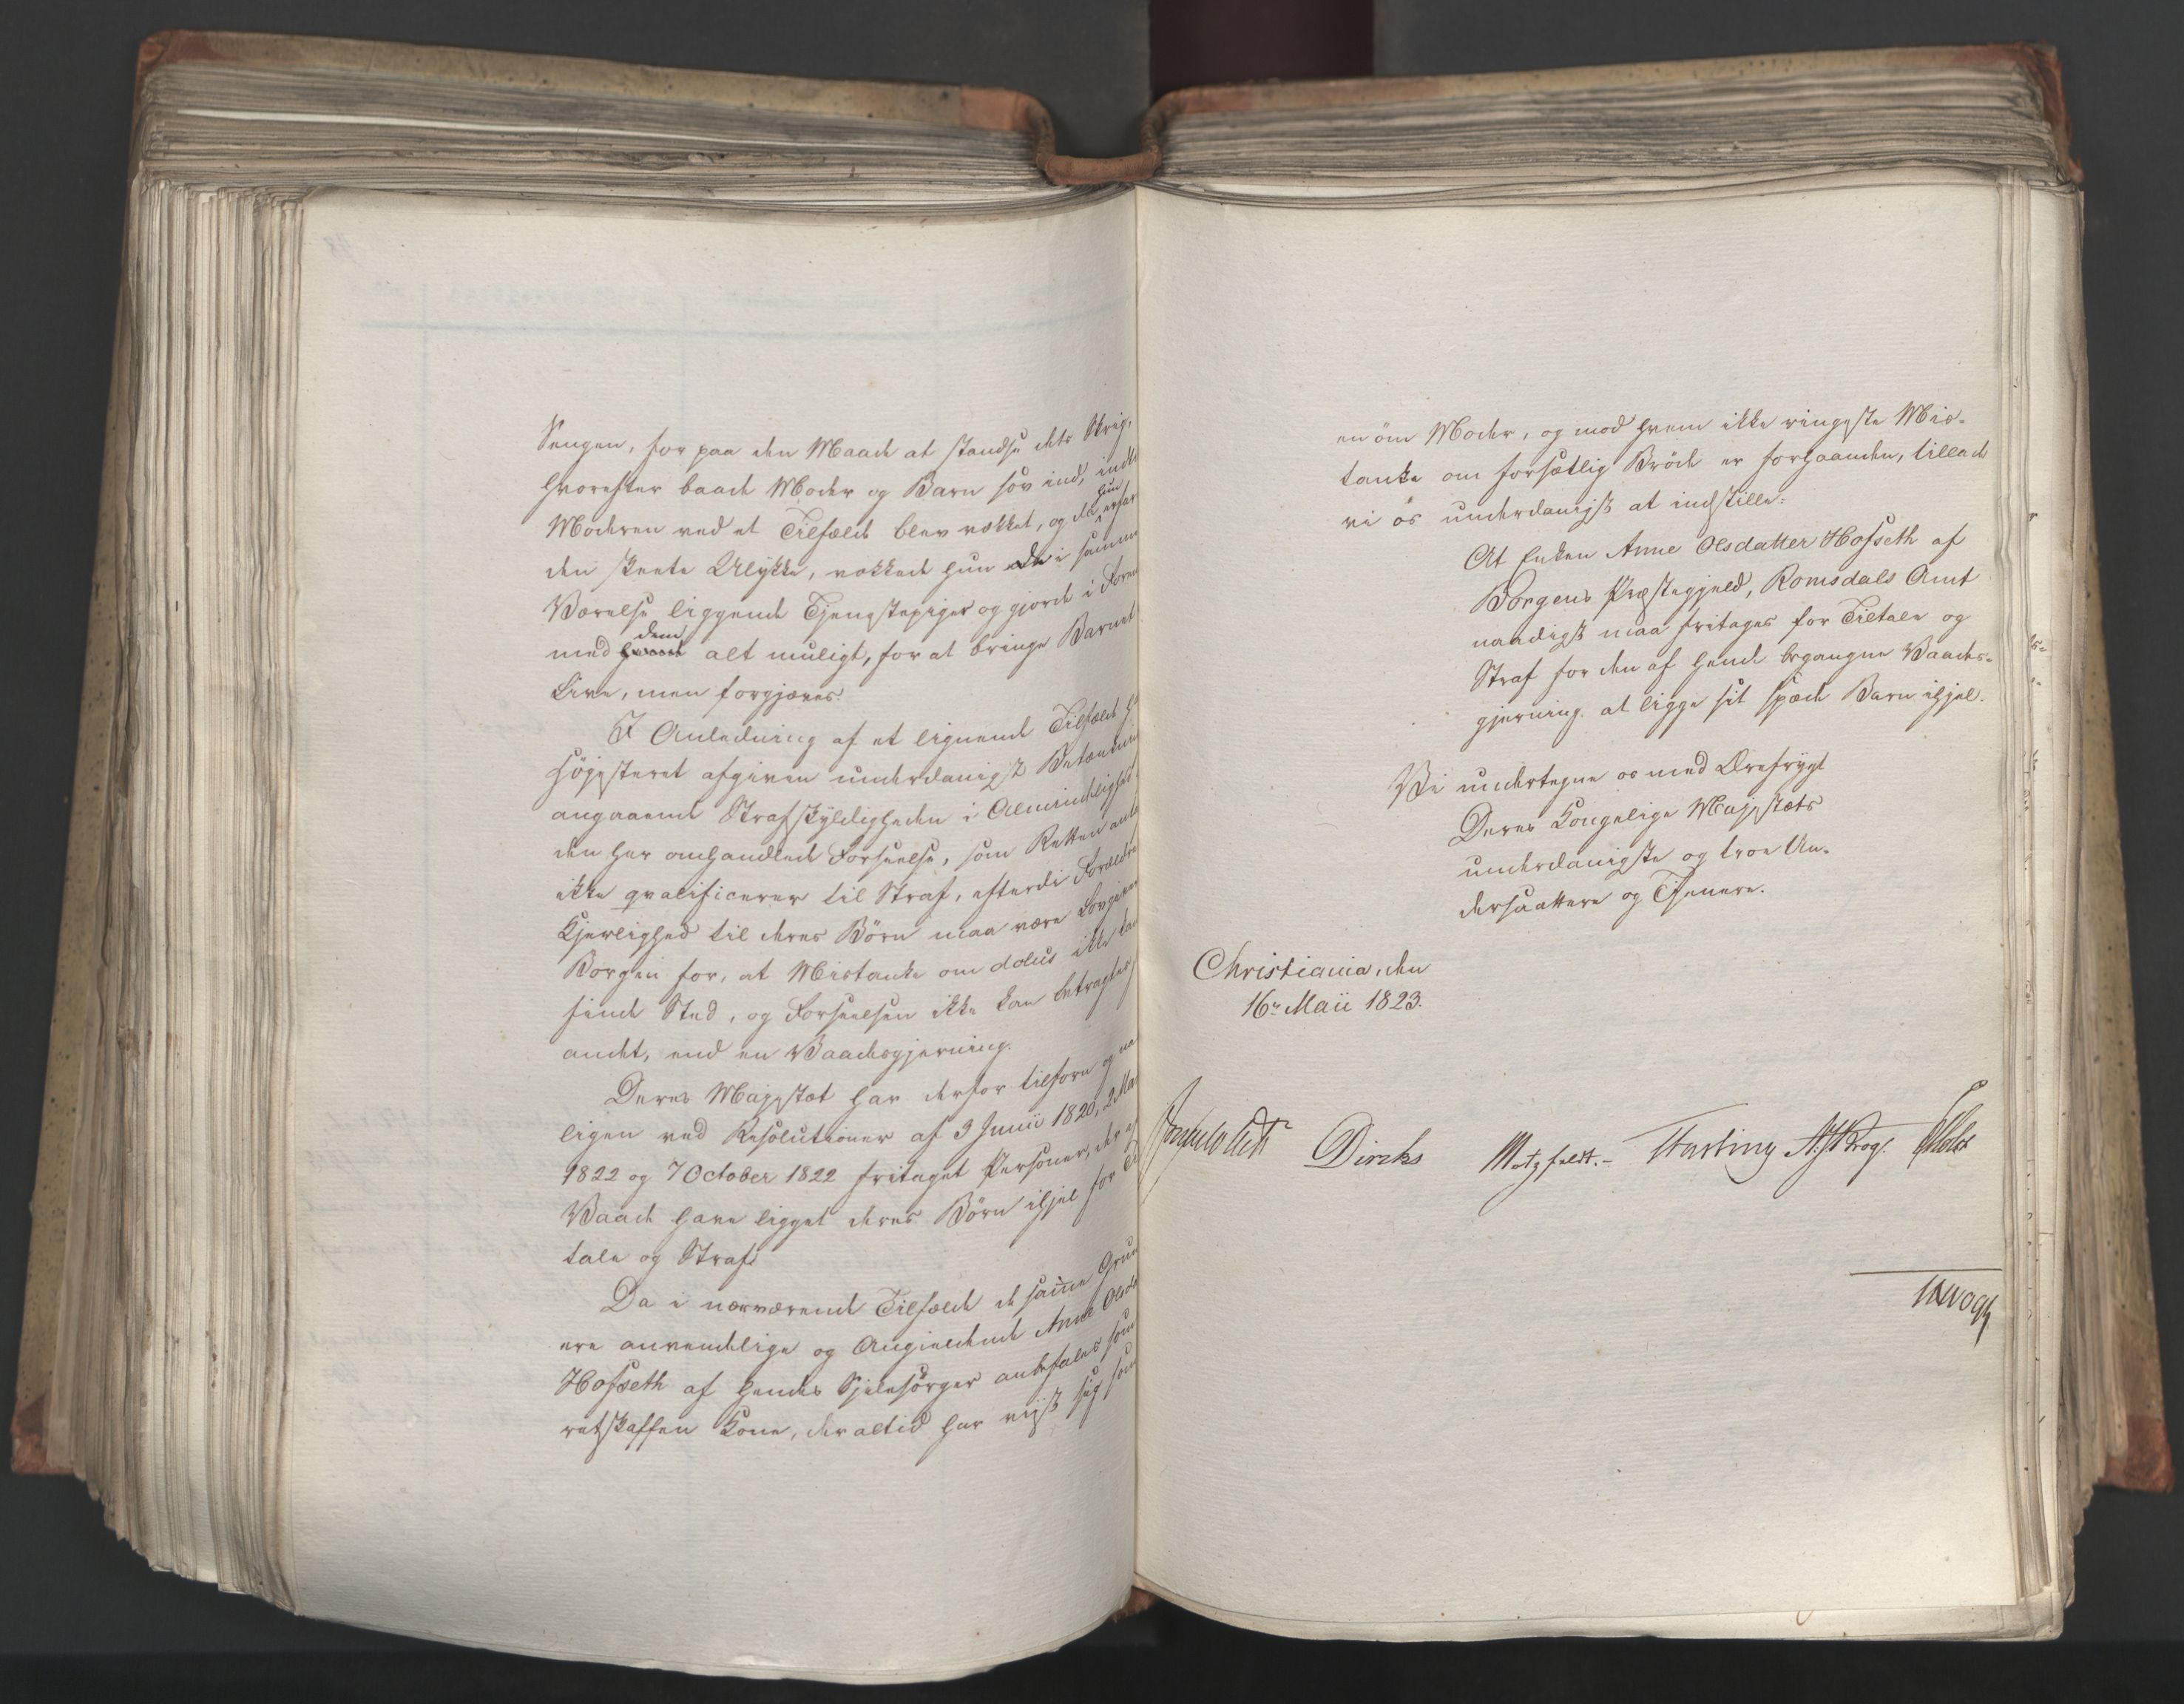 Sengen, for paa den Maade at standse dets Skrig,
hvorefter baade Moder og Barn sov ind, indtil
Moderen ved et Tilfælde blev vækket, og da hun erfar
den skeete Ulykke, vækkede hun de i samme
Værelse liggende Tjenestepiger og gjorde i Foree
med dem alt muligt, for at bringe Barnet
Live, men forgjæves.
I Anledning af et lignende Tilfælde h
Høyesteret afgiven underdanigst Betænkni
angaaende Strafskyldigheden i Almindelighed
den her omhandlede Forseelse, som Retten anta
ikke qvalificerer til Straf, efterdi Forældre
Kjerlighed til deres Børn maa være Lovgiver
Borgen for, at Mistanke om dolus ikke kan
finde Sted, og Forseelsen ikke kan betragtes
andet, end en Vaadesgjerning.
Deres Majestæt har derfor tilforn og na
ligen ved Resolutioner af 3 Junii 1820, 2 Ma
1822 og 7 October 1822 fritaget Personer, der af
Vaade have ligget deres Børn ihjel for Til
tale og Straf.
Da i nærværende Tilfælde de samme Grun
ere anvendelige og Angieldende Anne Olsd
Hofseth af hendes Sjelesørger anbefales som
retskaffen Kone, der altid har viist sig som
en öm Moder, og mod hvem ikke ringeste Mis-
tanke om forsætlig Bröde er forhaanden, tillade
vi os underdanigst at indstille:
At Enken Anne Olsdatter Hofseth af
Borgens Præstegjeld, Romsdals Amt
naadigst maa fritages for Tiltale og
Straf for den af hende begangne Vaades-
gjerning at ligge sit spæde Barn ihjel.
Vi undertegne os med Ærefrygt
Deres Kongelige Majestæts
underdanigste og troe Un-
dersaattere og Tjenere.
Christiania, den
16de Maii 1823.
Diriks Motzfeldt. Fasting A. J. Krog. Holst